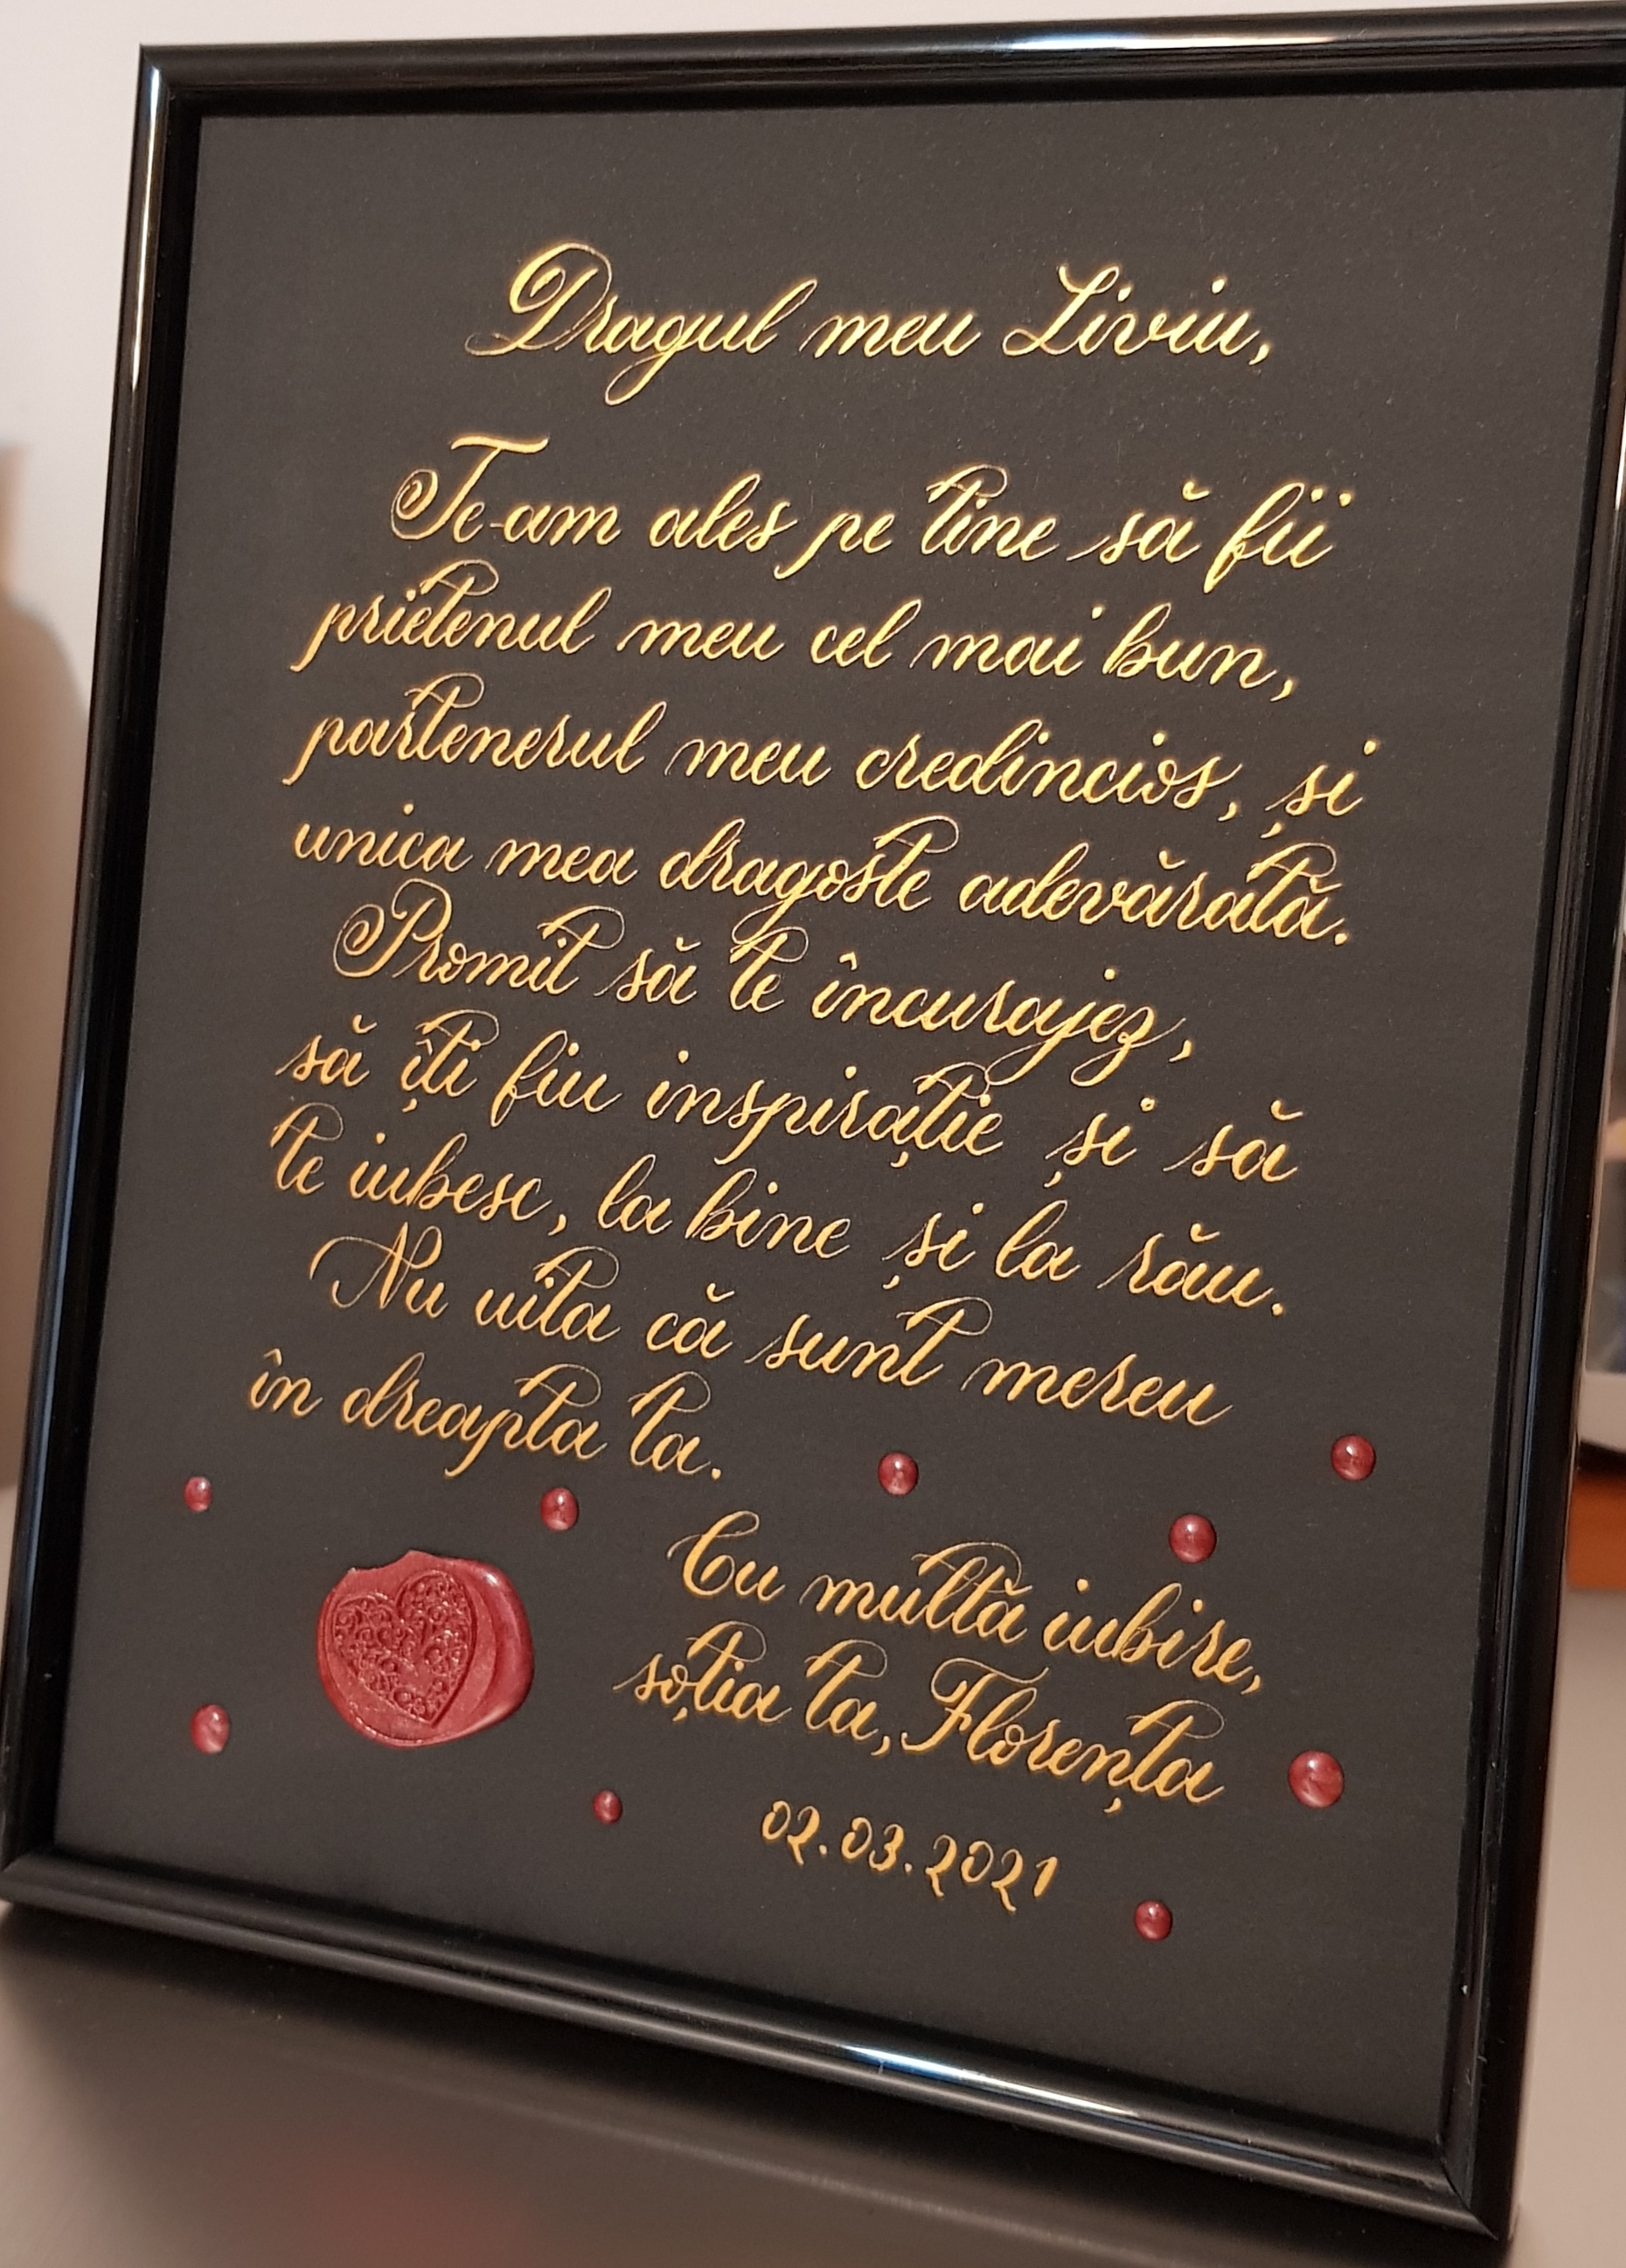 Dragul meu Liviu,
Te-am ales pe tine să fii
prietenul meu cel mai bun,
partenerul meu credincios, și
unica mea dragoste adevărată.
Promit să te încurajez,
să îți fiu inspirație și să
te iubesc, la bine și la rău.
Nu uita că sunt mereu
în dreapta ta.
Cu multă iubire,
soția ta, Florența
02.03.2021